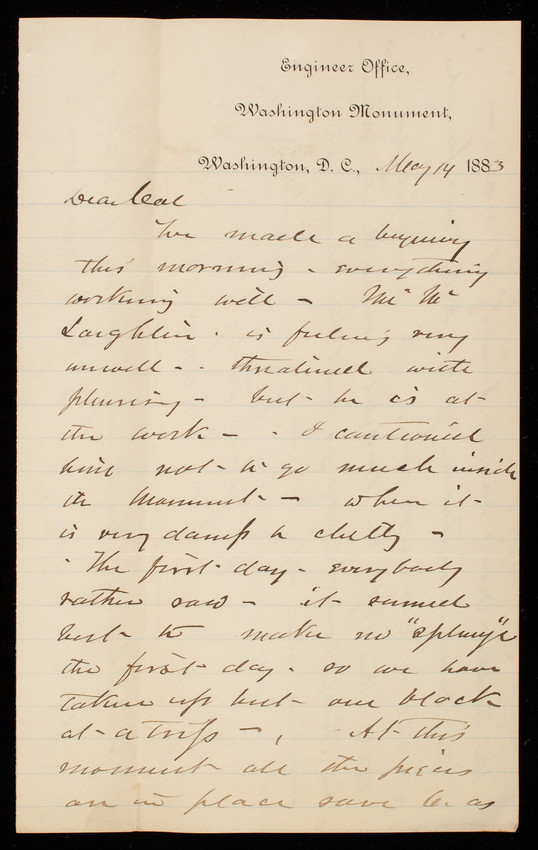 Engineer Office,
Washington Monument,
Washington, D. C., May 14 1883
Dear Col
We made a begining
this morning - everything
working well - Mr Mc
Laughlin - is feeling very
unwell - - threatened with
pleurisy - but he is at
the work - - I cautioned
him not to go much inside
the Monument - when it
is very damp & chilly -
- The first day - everybody
rather raw - it seemed
best to make no "splurge"
the first day - so we have
taken up but one block
at a trip - , At this
moment all the pieces
are in place save 6. as